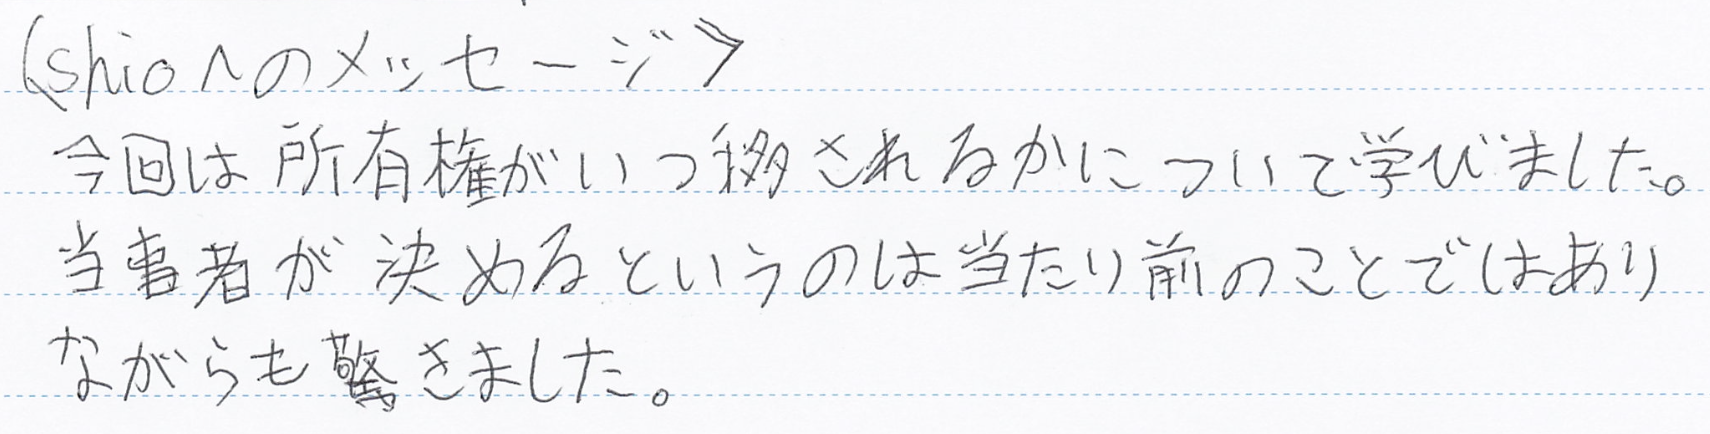 《shioへのメッセージ》
今回は所有権がいつ移されるかについて学びました。
当事者が決めるというのは当たり前のことではあり
ながらも驚きました。